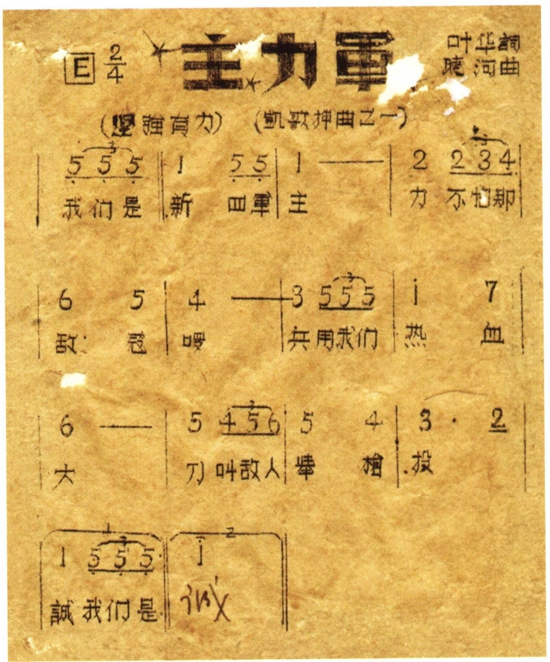 E 2/4 主力軍 叶华詞
曉河曲
(堅強有力) (凱歌押曲之一)
5 5 5 | 1 5 5 | 1 — | 2 2 3 4
我们是 新 四軍 主 力 不怕那
6 5 | 4 — | 3 5 5 5 | i 7
敌 寇 兵 用我们 热 血
6 — | 5 4 5 6 | 5 4 | 3 · 2
大 刀 叫敌人 捧 槍 投
1 5 5 5 | 1
誠 我们是 诚